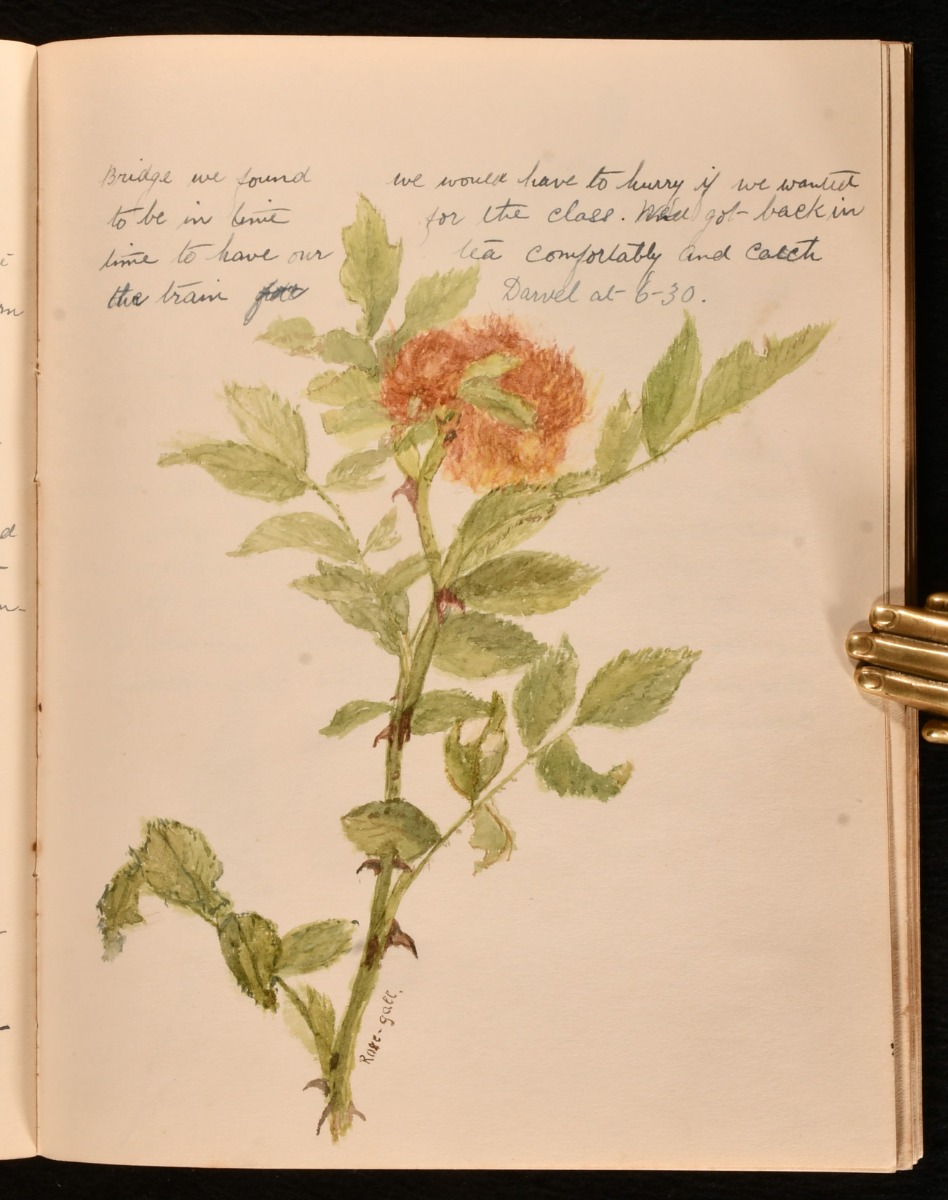 Bridge we found we would have to hurry if we wanted
to be in time for the class. We got back in
time to have our tea comfortably and catch
the train for Darvel at 6-30.
Rose-gall.